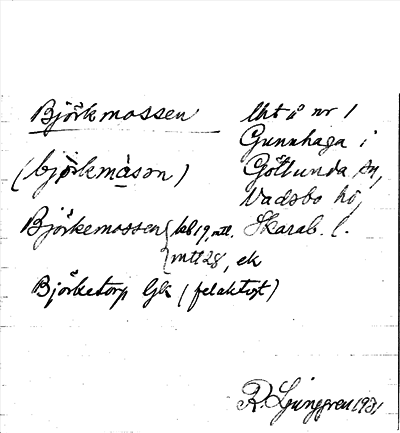 Björkmossen
(björkmåsan)
Björkemossen { kb 19, mtl.
mtl 28, ek
Björketorp Gk (felaktigt)
lht å nr 1
Gunnhaga i
Götlunda sn,
Vadsbo hd,
Skarab. l.
R. Ljunggren 1931